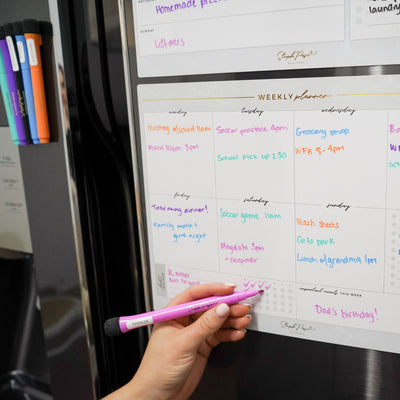 Homemade pizza
laundry
Leftovers
WEEKLY planner
monday
tuesday
wednesday
Meeting w/ school 11am
Piano lesson 3pm
Soccer practice 4pm
School pick up 2:30
Grocery shop
friday
saturday
sunday
Takeaway dinner!
Family movie +
game night
Soccer game 11am
Playdate 3pm
+ sleepover
Wash sheets
Go to park
Lunch w/ grandma 1pm
3L water
important events THIS WEEK
Dad's birthday!